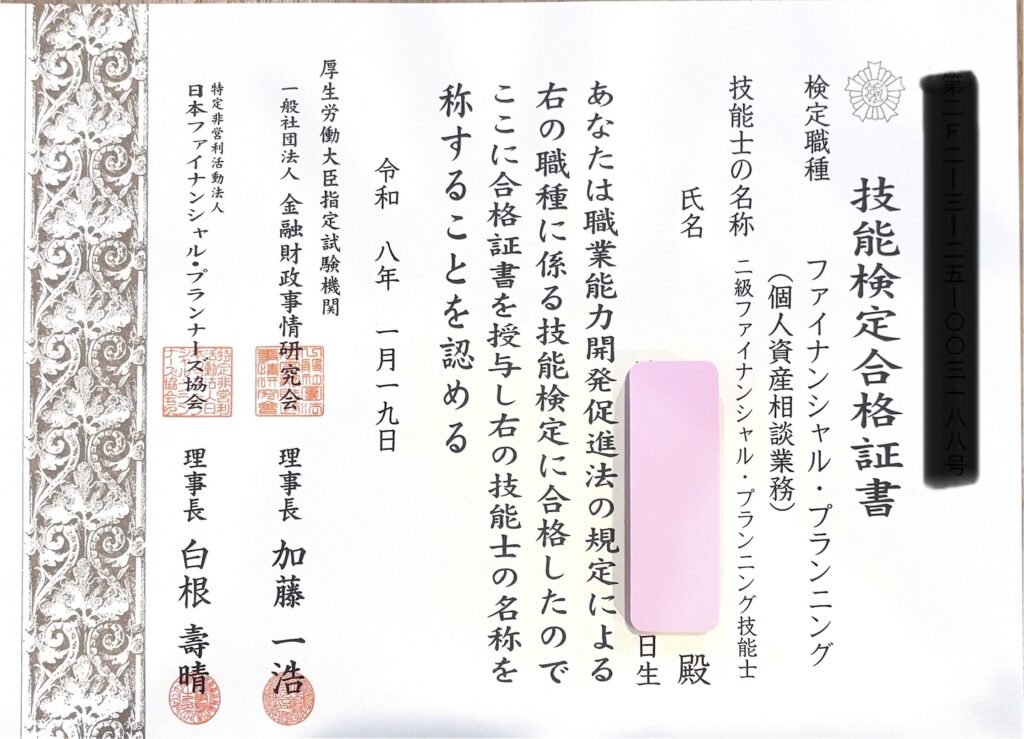 技能検定合格証書
検定職種 ファイナンシャル・プランニング
(個人資産相談業務)
技能士の名称 二級ファイナンシャル・プランニング技能士
氏名 殿
日生
あなたは職業能力開発促進法の規定による
右の職種に係る技能検定に合格したので
ここに合格証書を授与し右の技能士の名称を
称することを認める
令和 八年 一月一九日
厚生労働大臣指定試験機関
一般社団法人 金融財政事情研究会 理事長 加藤 一浩
特定非営利活動法人
日本ファイナンシャル・プランナーズ協会 理事長 白根 壽晴